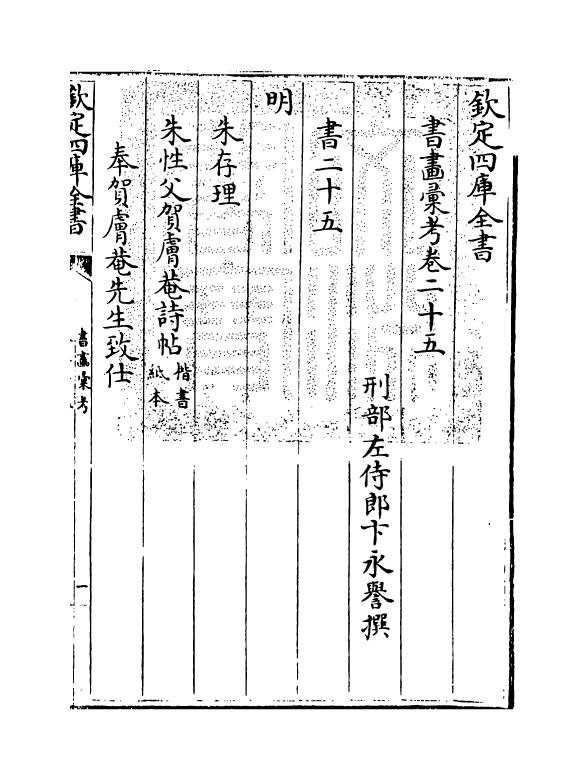 欽定四庫全書
書畫彙考卷二十五
刑部左侍郎卞永譽撰
書二十五
明
朱存理
朱性父賀膚菴詩帖
楷書
紙本
奉賀膚菴先生致仕
欽定四庫全書
書畫彙考
一